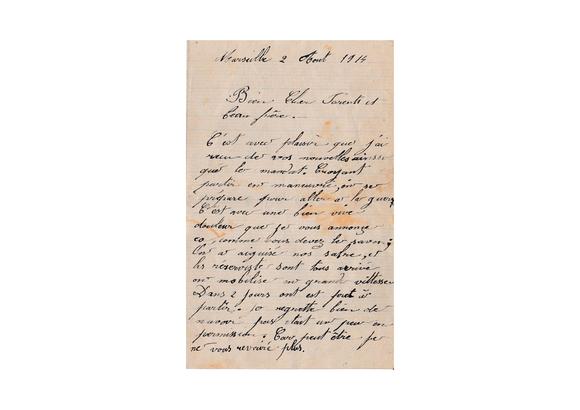 Marseille 2 Aout 1914
Bien Cher Parents et
beau frère.
C'est avec plaisir que j'ai
recu de vos nouvelles ainsi
que le mandat. Croyant
partir en maneuvre, on se
prépare pour aller a la guerre
C'est avec une bien vive
douleur que je vous annonce
ca, comme vous devez le savoir;
On a aiguisé nos sabre, et
les réserviste sont tous arrivé
on mobilise en grand vittesse
Dans 2 jours ont est pret à
partir. je regrette bien de
n'avoir pas était un peu en
permission. Car peut être je
ne vous reveiré plus.